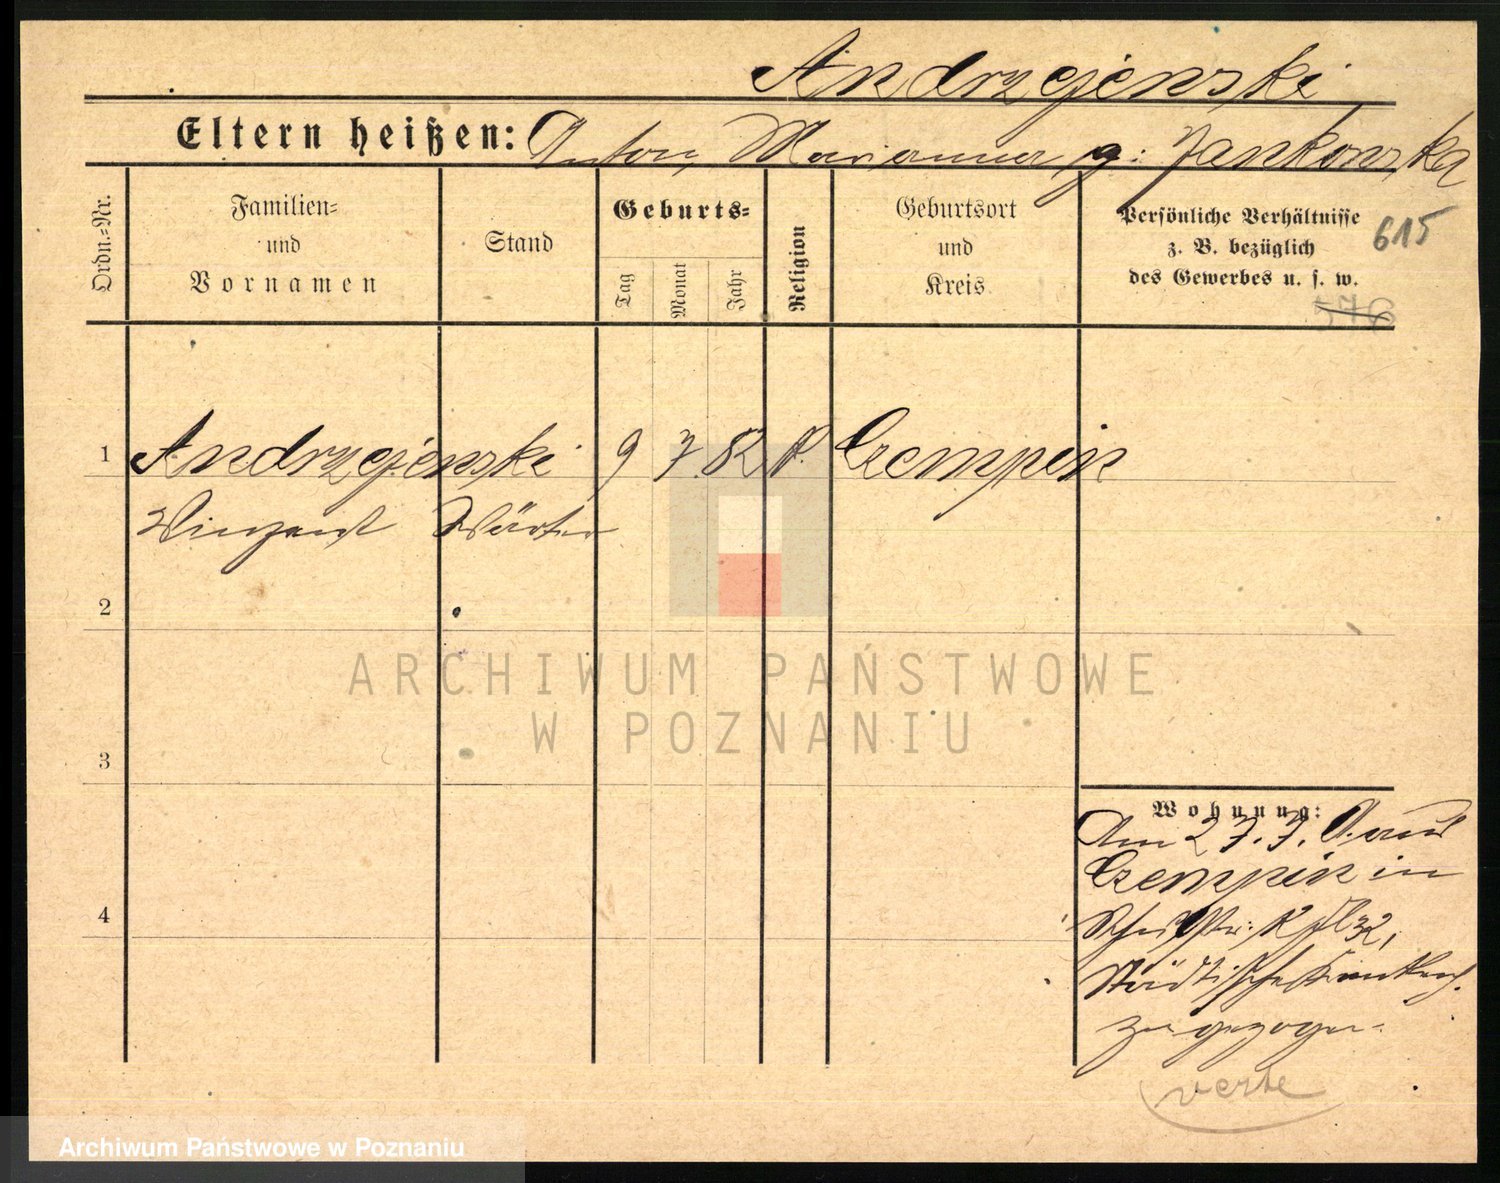 Andrzejewski
Eltern heißen: Anton, Marianna g: Jankowska
Ordn.-Nr.
Familien-
und
Vornamen
Stand
Geburts-
Tag
Monat
Jahr
Religion
Geburtsort
und
Kreis
Persönliche Verhältnisse
z. B. bezüglich
des Gewerbes u. s. w.
615
576
1 Andrzejewski 9 7. 82 Czempin
Winzent Wärter
2
3
4
ARCHIWUM PAŃSTWOWE
W POZNANIU
Wohnung:
Am 27.7. aus
Czempin in
32,
Städtische Krankenh.
zugezogen.
verte
Archiwum Państwowe w Poznaniu